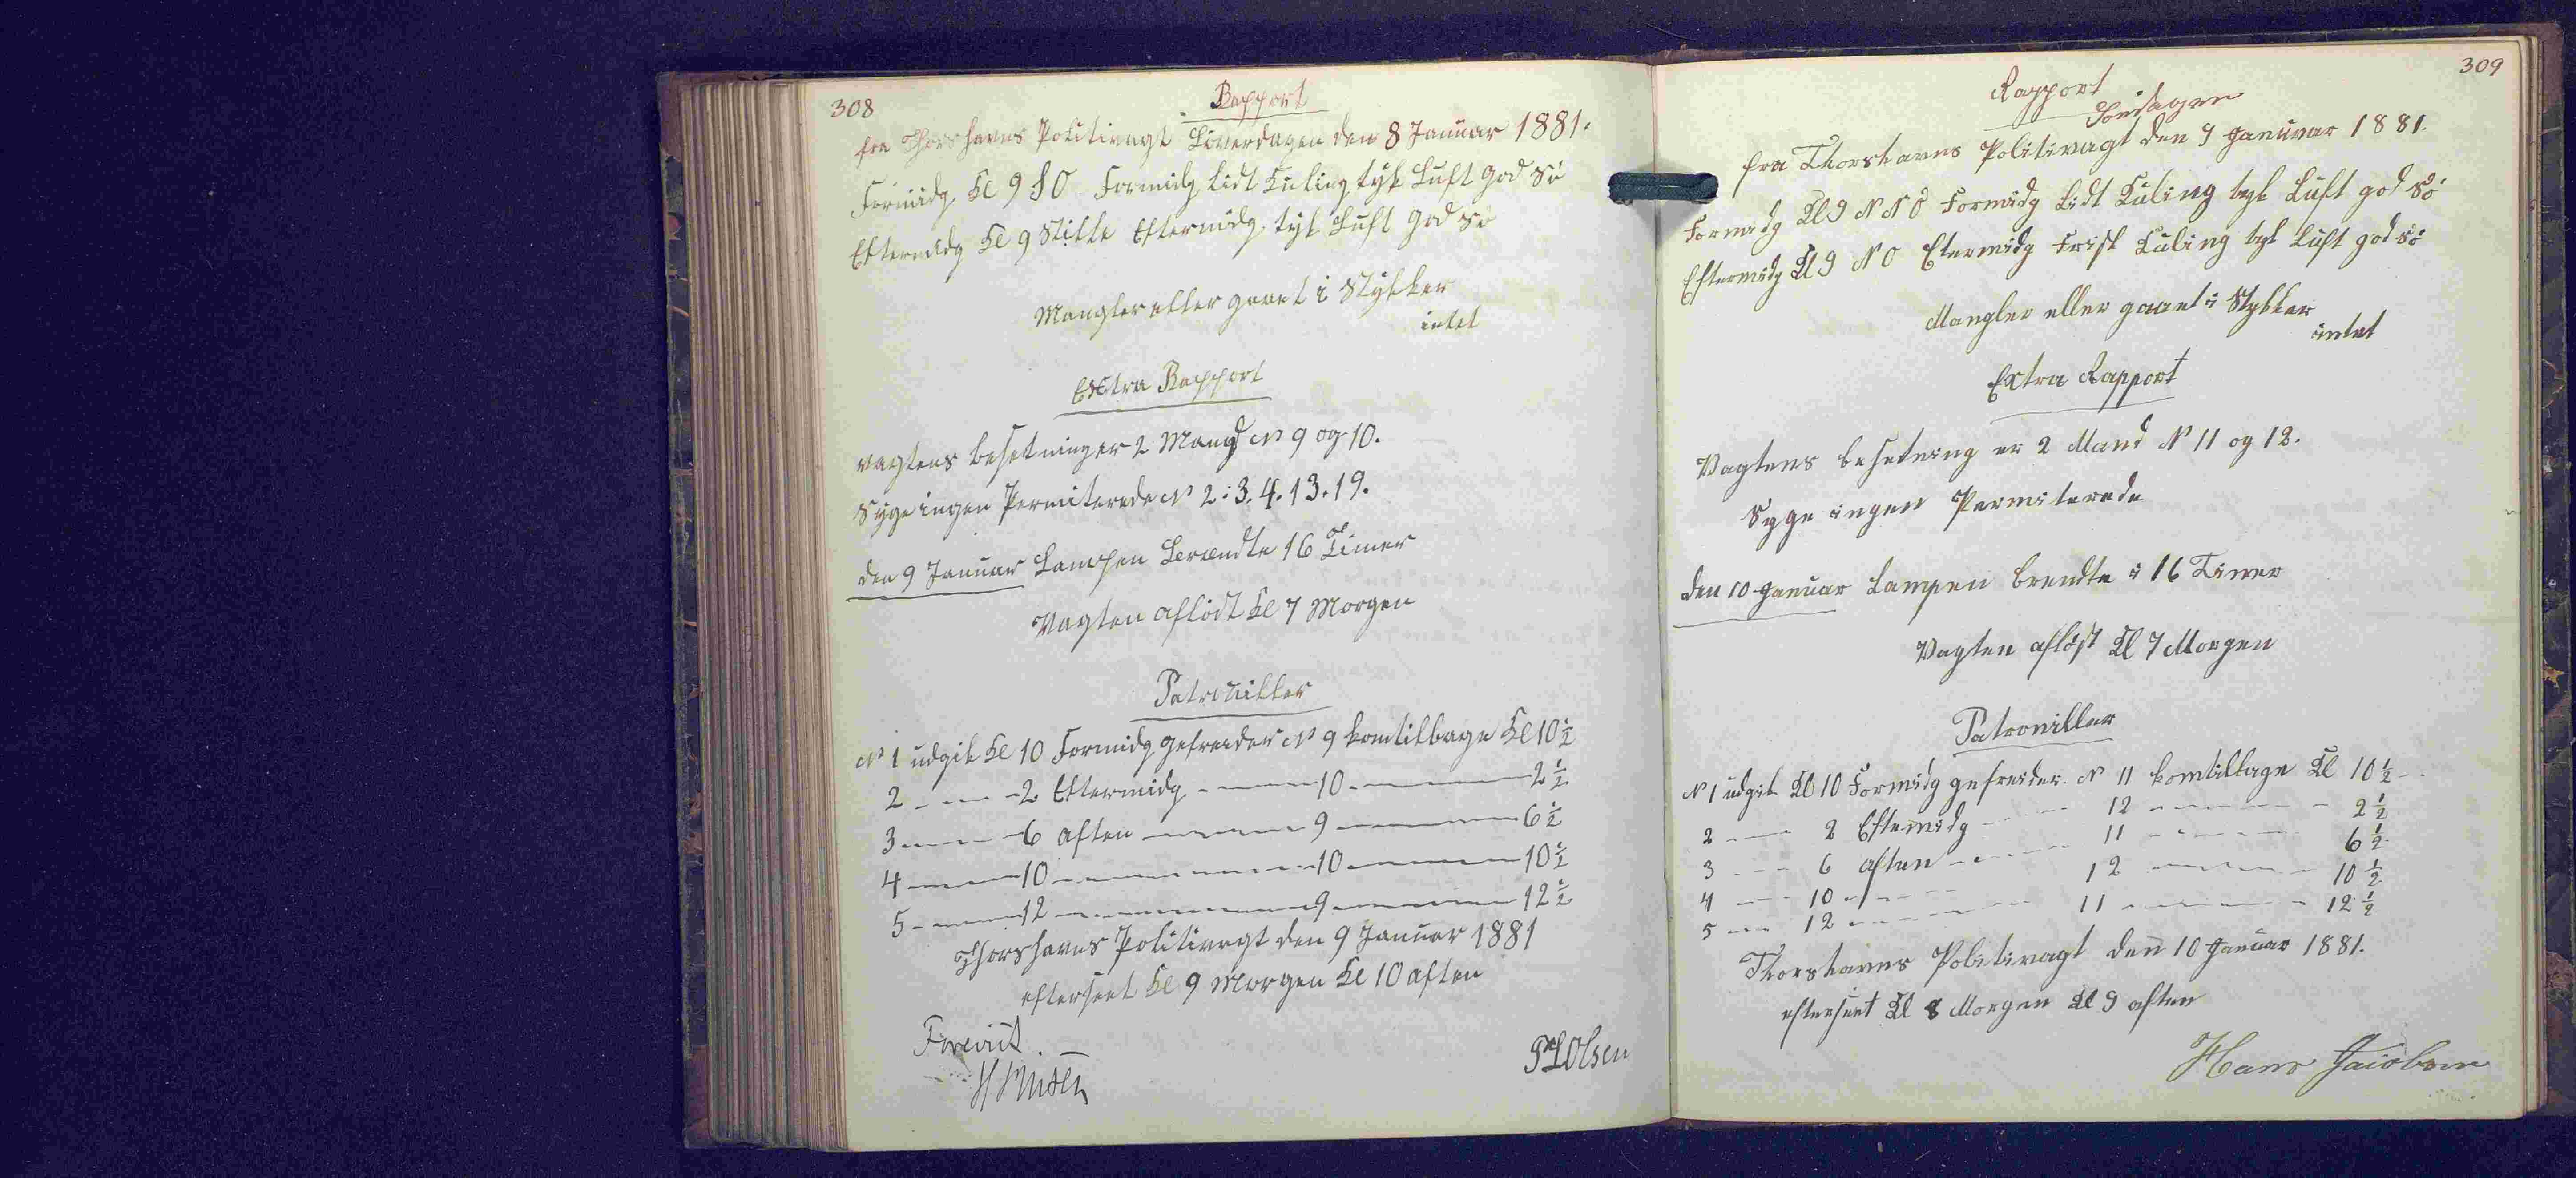 308
Rapport
fra Thorshavns Politivagt Löverdagen den 8 Januar 1881.
Formidg Kl 9 S O Formidg lidt Kuling tyk Luft god Sö
Eftermidg Kl 9 Stille Eftermidg tyk Luft god Sö
Mangler eller gaaet i Stykker
intet
Extra Rapport
Vagtens besetninger 2 Mand N 9 og 10.
Syge ingen Permiterede N 2.3.4.13.19.
den 9 Januar Lampen Brændte 16 Timer
Vagten aflöst Kl 7 Morgen
Patrouiller
N 1 udgik Kl 10 Formidg gefreider N 9 kom tilbage Kl 10 1/2
2 - - - 2 Eftermidg - - - 10 - - - 2 1/2
3 - - - 6 aften - - - 9 - - - 6 1/2
4 - - - 10 - - - 10 - - - 10 1/2
5 - - - 12 - - - 9 - - - 12 1/2
Thorshavns Politivagt den 9 Januar 1881
efterseet Kl 9 Morgen Kl 10 aften
Forevist
Olsen
309
Rapport
Söndagen
fra Thorshavns Politivagt den 9 Januar 1881.
Formidg Kl 9 N N O Formidg Lidt Kuling tyk Luft god Sö
Eftermidg Kl 9 N O Etermidg Frisk Kuling tyk Luft god Sö
Mangler eller gaaet i Stykker
intet
Extra Rapport
Vagtens besetning er 2 Mand N 11 og 12.
Syge ingen Permiterede
den 10 Januar Lampen brendte i 16 Timer
Vagten aflöst Kl 7 Morgen
Patrouiller
N 1 udgik Kl 10 Formidg gefreider N 11 kom tilbage Kl 10 1/2
2 - - - 2 Eftemidg - - - 12 - - - 2 1/2
3 - - - 6 aften - - - 11 - - - 6 1/2
4 - - - 10 - - - 12 - - - 10 1/2
5 - - - 12 - - - 11 - - - 12 1/2
Thorshavns Politivagt den 10 Januar 1881.
efterseet Kl 8 Morgen Kl 9 aften
Hans Jacobsen